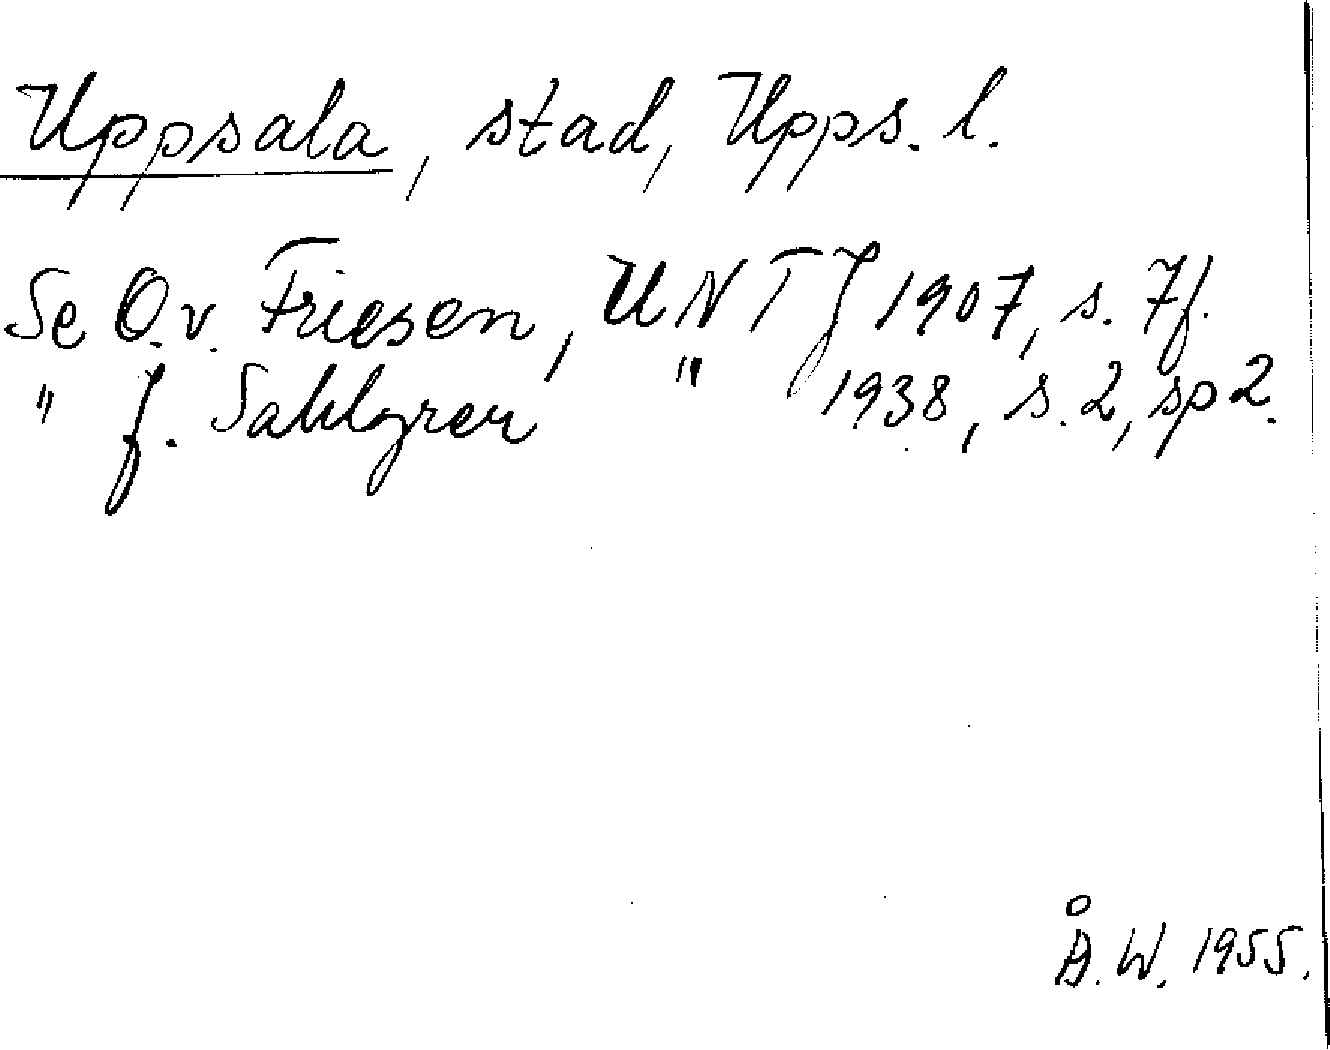 Uppsala, stad, Upps. l.
Se O.v. Friesen, UNTJ 1907, s. 7f.
" J. Sahlgren " 1938, s. 2, sp 2.
Å.W. 1955.